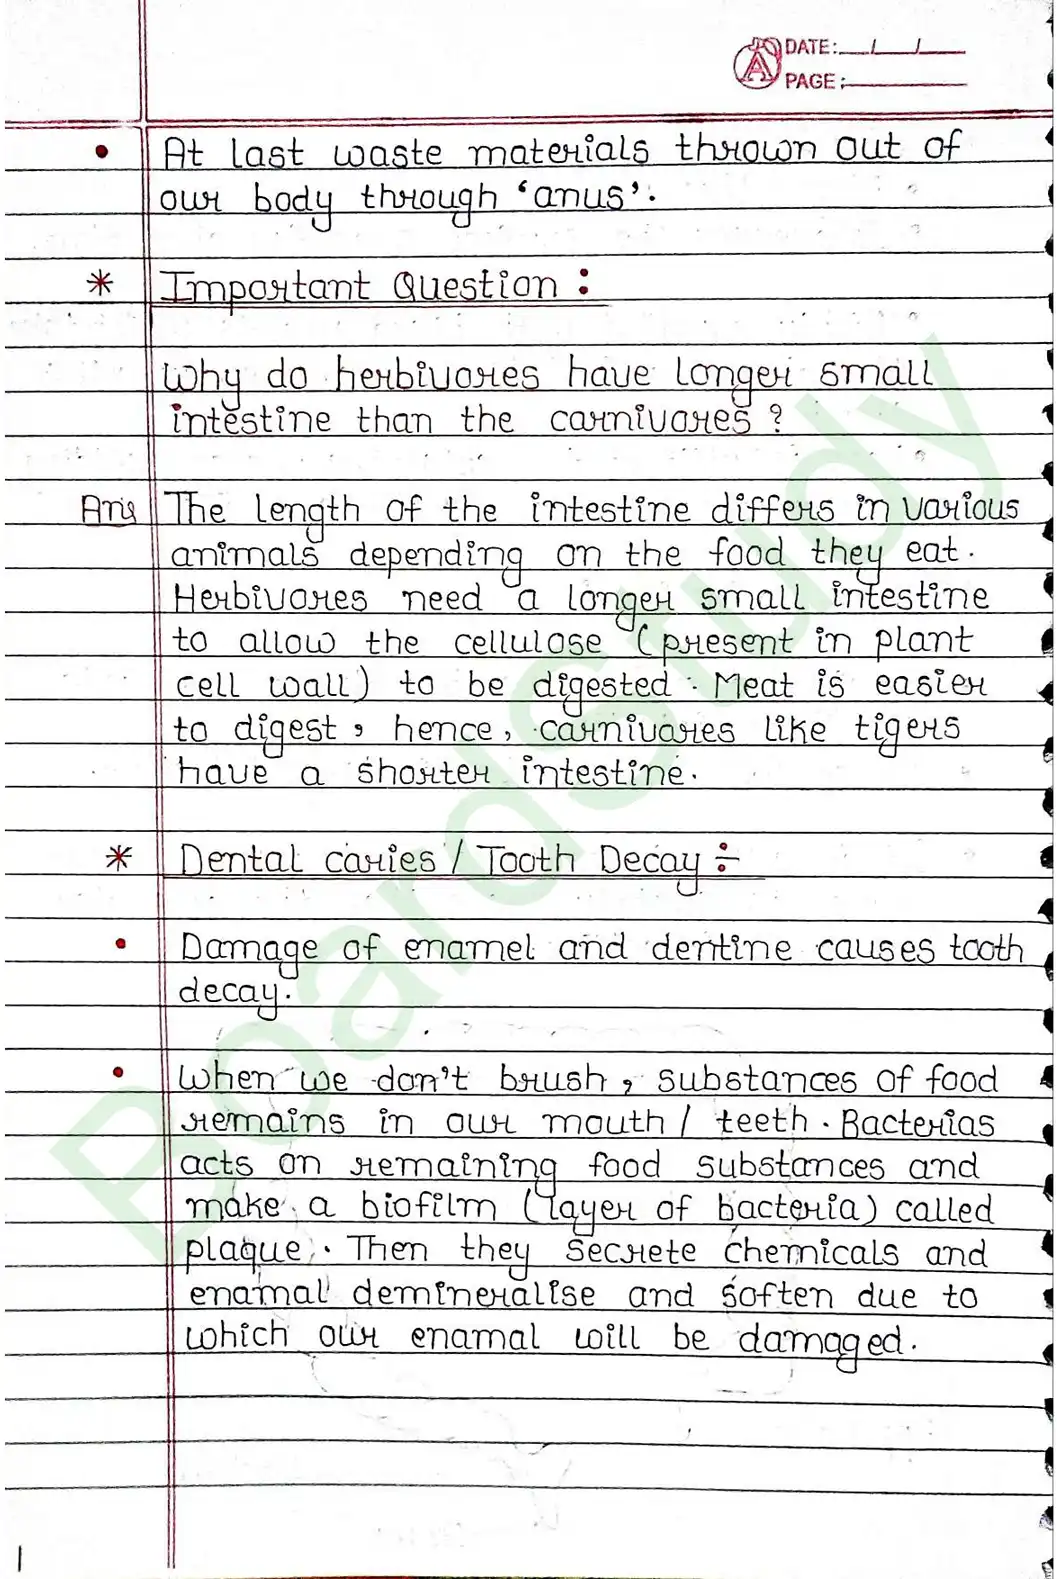 DATE:__/__/__
PAGE:______
• At last waste materials thrown out of
our body through ‘anus’.
* Important Question :
Why do herbivores have longer small
intestine than the carnivores ?
Ans The length of the intestine differs in various
animals depending on the food they eat.
Herbivores need a longer small intestine
to allow the cellulose (present in plant
cell wall) to be digested. Meat is easier
to digest, hence, carnivores like tigers
have a shorter intestine.
* Dental caries / Tooth Decay :-
• Damage of enamel and dentine causes tooth
decay.
• When we don't brush, substances of food
remains in our mouth / teeth. Bacterias
acts on remaining food substances and
make a biofilm (layer of bacteria) called
plaque. Then they secrete chemicals and
enamal demineralise and soften due to
which our enamal will be damaged.
BoardStudy